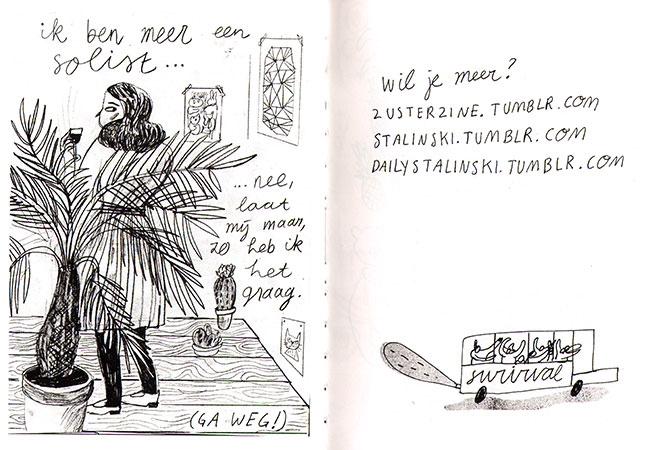 ik ben meer een
solist...
...nee,
laat
mij maar,
zo heb ik
het
graag.
(GA WEG!)
wil je meer?
ZUSTERZINE.TUMBLR.COM
STALINSKI.TUMBLR.COM
DAILYSTALINSKI.TUMBLR.COM
survival